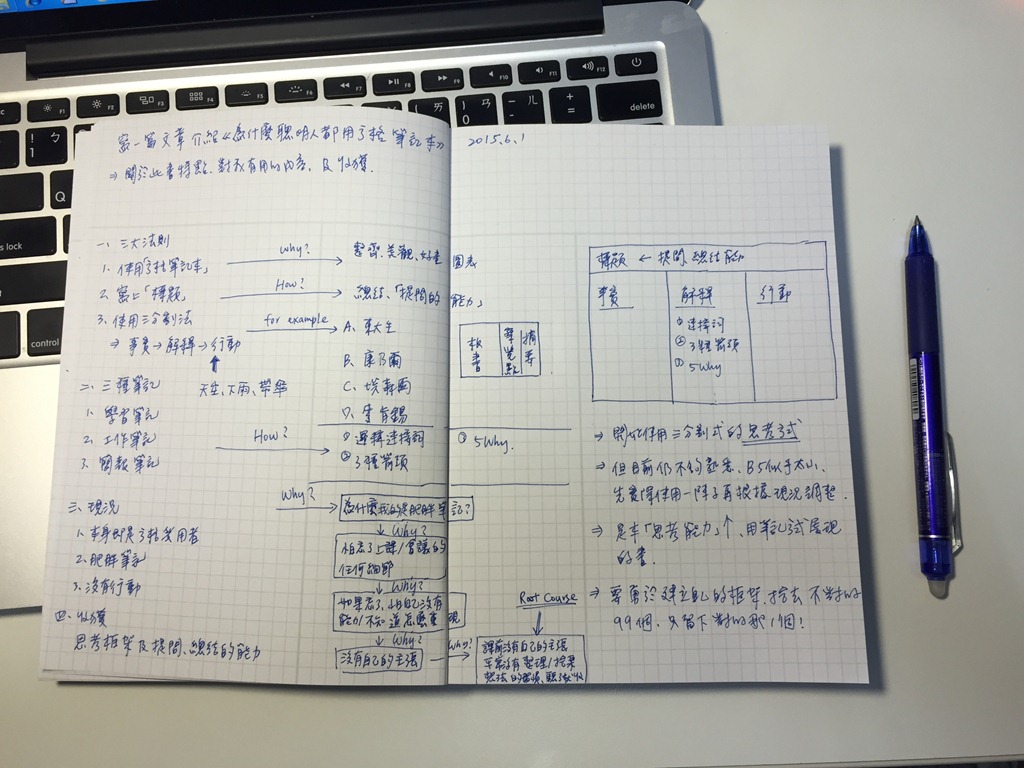 寫一篇文章介紹《為什麼聰明人都用方格筆記本》
2015.6.1
⇒ 關於此書特點、對我有用的內容、及收獲.
一、三大法則
1. 使用「方格筆記本」
Why?
整齊、美觀、好畫圖表
2. 寫上「標題」
How?
總結、「提問的能力」
3. 使用三分割法
for example
A. 東大生
⇒ 事實→解釋→行動
天空、下雨、帶傘
B. 康乃爾
C. 埃森爾
D. 李肯錫
板書
摘要
二、三種筆記
1. 學習筆記
2. 工作筆記
3. 簡報筆記
How?
① 選擇連接詞
② 3種箭頭
③ 5 Why.
三、現況
1. 本身即是方格使用者
2. 肥胖筆記
3. 沒有行動
Why?
為什麼我的是肥胖筆記?
Why?
怕忘了上課/會議的
任何細節
Why?
如果忘了、怕自己沒有
能力/不知道怎麼重現
Why?
沒有自己的主張
Why?
Root Course
課前沒有自己的主張
平常沒有整理/捨棄
四、收獲
思考框架及提問、總結的能力
標題 ← 提問、總結能力
事實
解釋
行動
① 連接詞
② 3種箭頭
③ 5 Why
⇒ 開始使用三分割式的思考方式
⇒ 但目前仍不夠熟悉、B5似乎太小、
先實際使用一陣子再根據現況調整.
⇒ 是本「思考能力」↑, 用筆記方式展現
的書.
⇒ 要勇於建立自己的框架、捨去不對的
99個、只留下對的那1個!
delete